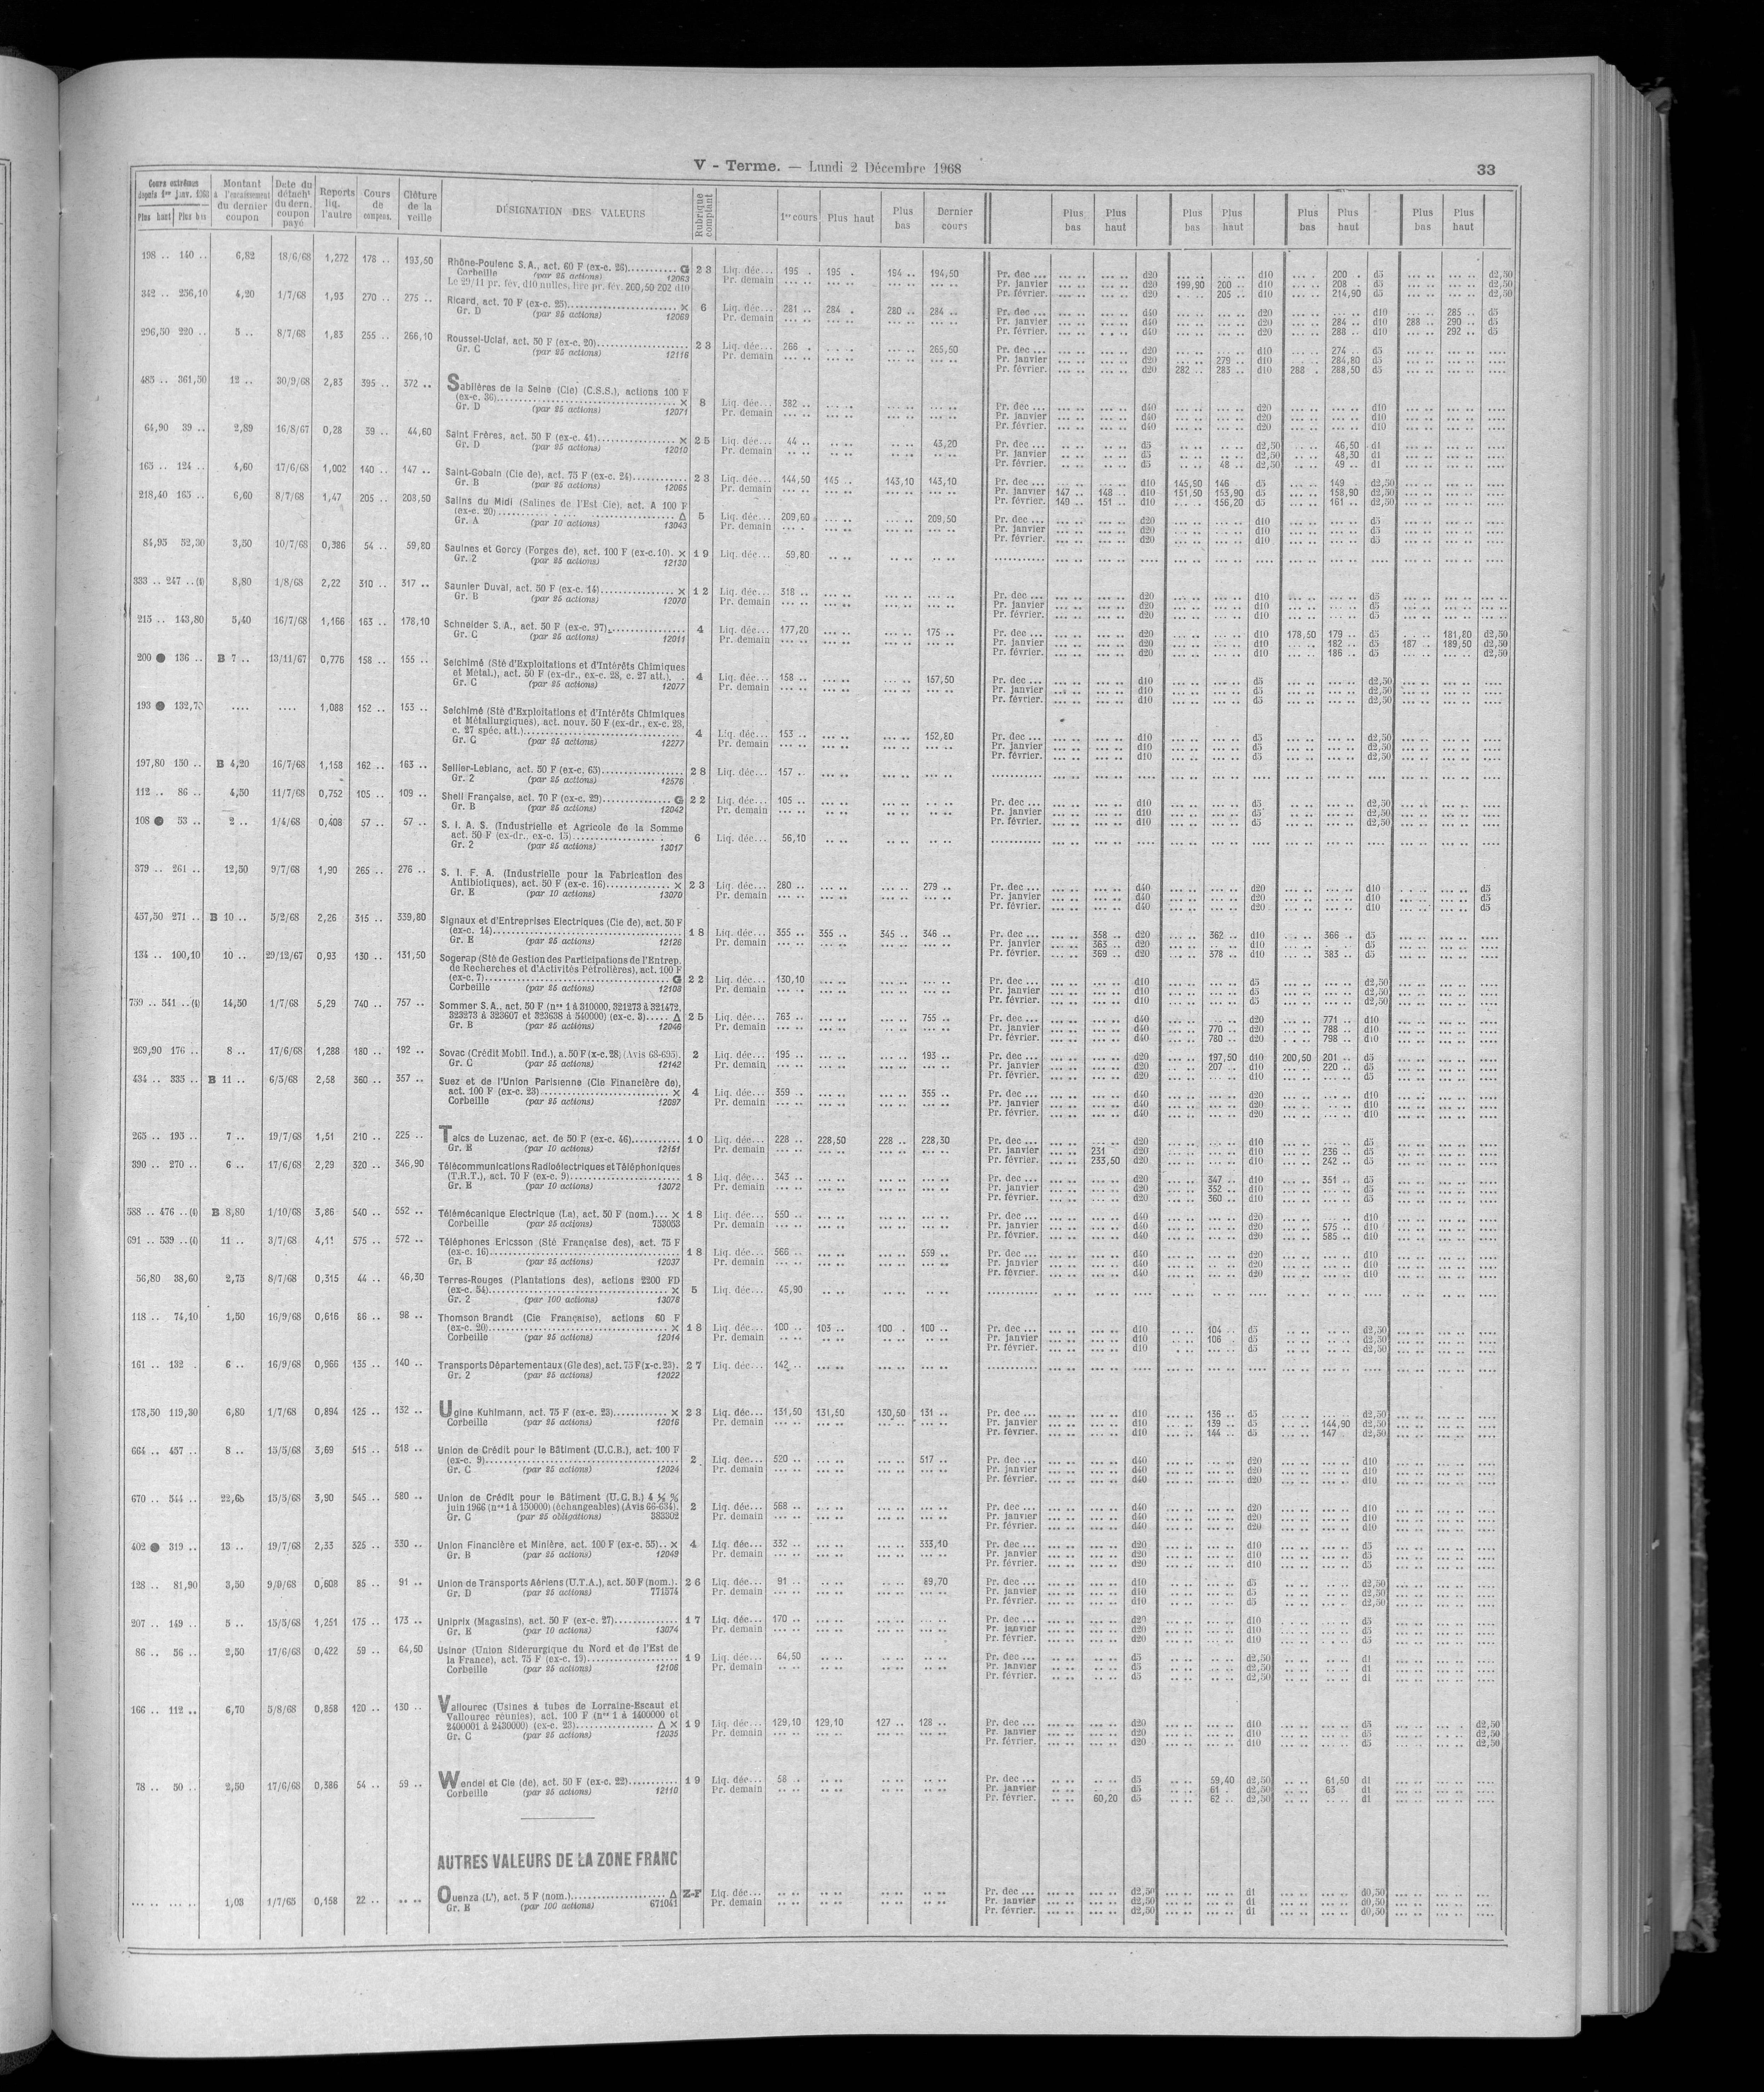 V - Terme. — Lundi 2 Décembre 1968
33
Cours extrêmes depuis 1er janv. 1968 Plus haut Plus bas
Montant à l'encaissement du dernier coupon
Date du détacht du dern. coupon payé
Reports liq. l'autre
Cours de compens.
Clôture de la veille
DÉSIGNATION DES VALEURS
Rubrique comptant
1er cours Plus haut Plus bas Dernier cours
Plus bas Plus haut Plus bas Plus haut Plus bas Plus haut Plus bas Plus haut
198 .. 140 .. 6,82 18/6/68 1,272 178 .. 193,50 Rhône-Poulenc S.A., act. 60 F (ex-c. 26)........... G 23 Liq. déc... 195 . 195 . 194 .. 194,50 Pr. dec ... d20 d10 200 . d5 d2,50
Corbeille (par 25 actions) 12063 Pr. demain Pr. janvier d20 199,90 200 .. d10 208 . d5 d2,50
Le 29/11 pr. fév. d10 nulles, lire pr. fév. 200,50 202 d10 Pr. février. d20 205 .. d10 214,90 d5 d2,50
342 .. 256,10 4,20 1/7/68 1,93 270 .. 275 .. Ricard, act. 70 F (ex-c. 25)........... × 6 Liq. déc... 281 .. 284 . 280 .. 284 .. Pr. dec ... d40 d20 d10 285 .. d5
Gr. D (par 25 actions) 12069 Pr. demain Pr. janvier d40 d20 284 .. d10 288 .. 290 .. d5
Pr. février. d40 d20 288 .. d10 292 .. d5
296,50 220 .. 5 .. 8/7/68 1,83 255 .. 266,10 Roussel-Uclaf, act. 50 F (ex-c. 20)........... 23 Liq. déc... 266 . 265,50 Pr. dec ... d20 d10 274 .. d5
Gr. C (par 25 actions) 12116 Pr. demain Pr. janvier d20 279 .. d10 284,80 d5
Pr. février. d20 282 .. 283 .. d10 288 . 288,50 d5
485 .. 361,50 12 .. 30/9/68 2,83 395 .. 372 .. Sablières de la Seine (Cie) (C.S.S.), actions 100 F
(ex-c. 36)........... × 8 Liq. déc... 382 .. Pr. déc ... d40 d20 d10
Gr. D (par 25 actions) 12071 Pr. demain Pr. janvier d40 d20 d10
Pr. février. d40 d20 d10
64,90 39 .. 2,89 16/8/67 0,28 39 .. 44,60 Saint Frères, act. 50 F (ex-c. 41)........... × 25 Liq. déc... 44 .. 43,20 Pr. dec ... d5 d2,50 46,50 d1
Gr. D (par 25 actions) 12010 Pr. demain Pr. janvier d5 d2,50 48,30 d1
Pr. février. d5 48 .. d2,50 49 .. d1
165 .. 124 .. 4,60 17/6/68 1,002 140 .. 147 .. Saint-Gobain (Cie de), act. 75 F (ex-c. 24)........... 23 Liq. déc... 144,50 145 .. 143,10 143,10 Pr. dec ... d10 145,90 146 .. d5 149 .. d2,50
Gr. B (par 25 actions) 12065 Pr. demain Pr. janvier 147 .. 148 .. d10 151,50 153,90 d5 158,90 d2,50
Pr. février. 149 .. 151 .. d10 156,20 d5 161 .. d2,50
218,40 165 .. 6,60 8/7/68 1,47 205 .. 208,50 Salins du Midi (Salines de l'Est Cie), act. A 100 F
(ex-c. 20)........... Δ 5 Liq. déc... 209,60 209,50 Pr. dec ... d20 d10 d5
Gr. A (par 10 actions) 13043 Pr. demain Pr. janvier d20 d10 d5
Pr. février. d20 d10 d5
84,95 52,30 3,50 10/7/68 0,386 54 .. 59,80 Saulnes et Gorcy (Forges de), act. 100 F (ex-c. 10). × 19 Liq. déc... 59,80
Gr. 2 (par 25 actions) 12130
333 .. 247 ..(1) 8,80 1/8/68 2,22 310 .. 317 .. Saunier Duval, act. 50 F (ex-c. 14)........... × 12 Liq. déc... 318 .. Pr. dec ... d20 d10 d5
Gr. B (par 25 actions) 12070 Pr. demain Pr. janvier d20 d10 d5
Pr. février. d20 d10 d5
215 .. 143,80 5,40 16/7/68 1,166 163 .. 178,10 Schneider S.A., act. 50 F (ex-c. 97)........... 4 Liq. déc... 177,20 175 .. Pr. dec ... d20 d10 178,50 179 .. d5 181,80 d2,50
Gr. C (par 25 actions) 12011 Pr. demain Pr. janvier d20 d10 182 .. d5 187 .. 189,50 d2,50
Pr. février. d20 d10 186 .. d5 d2,50
200 ● 136 .. B 7 .. 13/11/67 0,776 158 .. 155 .. Selchimé (Sté d'Exploitations et d'Intérêts Chimiques
et Métal.), act. 50 F (ex-dr., ex-c. 28, c. 27 att.). . 4 Liq. déc... 158 .. 157,50 Pr. dec ... d10 d5 d2,50
Gr. C (par 25 actions) 12077 Pr. demain Pr. janvier d10 d5 d2,50
Pr. février. d10 d5 d2,50
193 ● 132,70 .... .... 1,088 152 .. 153 .. Selchimé (Sté d'Exploitations et d'Intérêts Chimiques
et Métallurgiques), act. nouv. 50 F (ex-dr., ex-c. 28,
c. 27 spéc. att.)........... 4 Liq. déc... 153 .. 152,80 Pr. dec ... d10 d5 d2,50
Gr. C (par 25 actions) 12277 Pr. demain Pr. janvier d10 d5 d2,50
Pr. février. d10 d5 d2,50
197,80 150 .. B 4,20 16/7/68 1,158 162 .. 163 .. Sellier-Leblanc, act. 50 F (ex-c. 63)........... 28 Liq. déc... 157 ..
Gr. 2 (par 25 actions) 12576
112 .. 86 .. 4,50 11/7/68 0,752 105 .. 109 .. Shell Française, act. 70 F (ex-c. 29)........... G 22 Liq. déc... 105 .. Pr. dec ... d10 d5 d2,50
Gr. B (par 25 actions) 12042 Pr. demain Pr. janvier d10 d5 d2,50
Pr. février. d10 d5 d2,50
108 ● 53 .. 2 .. 1/4/68 0,408 57 .. 57 .. S. I. A. S. (Industrielle et Agricole de la Somme
act. 50 F (ex-dr., ex-c. 15)........... 6 Liq. déc... 56,10
Gr. 2 (par 25 actions) 13017
379 .. 261 .. 12,50 9/7/68 1,90 265 .. 276 .. S. I. F. A. (Industrielle pour la Fabrication des
Antibiotiques), act. 50 F (ex-c. 16)........... × 23 Liq. déc... 280 .. 279 .. Pr. dec ... d40 d20 d10 d5
Gr. E (par 10 actions) 13070 Pr. demain Pr. janvier d40 d20 d10 d5
Pr. février. d40 d20 d10 d5
457,50 271 .. B 10 .. 5/2/68 2,26 315 .. 339,80 Signaux et d'Entreprises Electriques (Cie de), act. 50 F
(ex-c. 14)........... 18 Liq. déc... 355 .. 355 .. 345 .. 346 .. Pr. dec ... 358 .. d20 362 .. d10 366 .. d5
Gr. E (par 25 actions) 12126 Pr. demain Pr. janvier 363 .. d20 d10 d5
Pr. février. 369 .. d20 378 .. d10 383 .. d5
134 .. 100,10 10 .. 29/12/67 0,93 130 .. 131,50 Sogerap (Sté de Gestion des Participations de l'Entrep.
de Recherches et d'Activités Pétrolières), act. 100 F
(ex-c. 7)........... G 22 Liq. déc... 130,10 Pr. dec ... d10 d5 d2,50
Corbeille (par 25 actions) 12108 Pr. demain Pr. janvier d10 d5 d2,50
Pr. février. d10 d5 d2,50
759 .. 541 ..(1) 14,50 1/7/68 5,29 740 .. 757 .. Sommer S.A., act. 50 F (nos 1 à 310000, 321273 à 321472,
323273 à 323607 et 323638 à 540000) (ex-c. 3)..... Δ 25 Liq. déc... 763 .. 755 .. Pr. dec ... d40 d20 771 .. d10
Gr. B (par 25 actions) 12046 Pr. demain Pr. janvier d40 770 .. d20 788 .. d10
Pr. février. d40 780 .. d20 798 .. d10
269,90 176 .. 8 .. 17/6/68 1,288 180 .. 192 .. Sovac (Crédit Mobil. Ind.), a. 50 F (x-c. 28) (Avis 68-695). 2 Liq. déc... 195 .. 193 .. Pr. dec ... d20 197,50 d10 200,50 201 .. d5
Gr. C (par 25 actions) 12142 Pr. demain Pr. janvier d20 207 .. d10 220 .. d5
Pr. février. d20 d10 d5
434 .. 335 .. B 11 .. 6/5/68 2,58 360 .. 357 .. Suez et de l'Union Parisienne (Cie Financière de),
act. 100 F (ex-c. 23)........... × 4 Liq. déc... 359 .. 355 .. Pr. dec ... d40 d20 d10
Corbeille (par 25 actions) 12097 Pr. demain Pr. janvier d40 d20 d10
Pr. février. d40 d20 d10
265 .. 195 .. 7 .. 19/7/68 1,51 210 .. 225 .. Talcs de Luzenac, act. de 50 F (ex-c. 46)........... 10 Liq. déc... 228 .. 228,50 228 .. 228,50 Pr. dec ... d20 d10 d5
Gr. E (par 10 actions) 12151 Pr. demain Pr. janvier 231 d20 d10 236 .. d5
Pr. février. 233,50 d20 d10 242 .. d5
390 .. 270 .. 6 .. 17/6/68 2,29 320 .. 346,90 Télécommunications Radioélectriques et Téléphoniques
(T.R.T.), act. 70 F (ex-c. 9)........... 18 Liq. déc... 343 .. Pr. dec ... d20 347 .. d10 351 .. d5
Gr. E (par 10 actions) 13072 Pr. demain Pr. janvier d20 352 .. d10 d5
Pr. février. d20 360 .. d10 d5
588 .. 476 ..(1) B 8,80 1/10/68 3,86 540 .. 552 .. Télémécanique Electrique (La), act. 50 F (nom.)... × 18 Liq. déc... 550 .. Pr. dec ... d40 d20 d10
Corbeille (par 25 actions) 753053 Pr. demain Pr. janvier d40 d20 575 .. d10
Pr. février. d40 d20 585 .. d10
691 .. 539 ..(1) 11 .. 3/7/68 4,11 575 .. 572 .. Téléphones Ericsson (Sté Française des), act. 75 F
(ex-c. 16)........... 18 Liq. déc... 566 .. 559 .. Pr. dec ... d40 d20 d10
Gr. B (par 25 actions) 12037 Pr. demain Pr. janvier d40 d20 d10
Pr. février. d40 d20 d10
56,80 38,60 2,75 8/7/68 0,315 44 .. 46,30 Terres-Rouges (Plantations des), actions 2200 FD
(ex-c. 54)........... × 5 Liq. déc... 45,90
Gr. 2 (par 100 actions) 13078
118 .. 74,10 1,50 16/9/68 0,616 86 .. 98 .. Thomson Brandt (Cie Française), actions 60 F
(ex-c. 20)........... × 18 Liq. déc... 100 .. 103 .. 100 . 100 .. Pr. dec ... d10 104 .. d5 d2,50
Corbeille (par 25 actions) 12014 Pr. demain Pr. janvier d10 106 .. d5 d2,50
Pr. février. d10 d5 d2,50
161 .. 132 . 6 .. 16/9/68 0,966 135 .. 140 .. Transports Départementaux (Gle des), act. 75 F (x-c. 23). 27 Liq. déc... 142 ..
Gr. 2 (par 25 actions) 12022
178,50 119,30 6,80 1/7/68 0,894 125 .. 132 .. Ugine Kuhlmann, act. 75 F (ex-c. 23)........... × 23 Liq. déc... 131,50 131,50 130,50 131 .. Pr. dec ... d10 136 .. d5 d2,50
Corbeille (par 25 actions) 12016 Pr. demain Pr. janvier d10 139 .. d5 144,90 d2,50
Pr. février. d10 144 .. d5 147 .. d2,50
664 .. 457 .. 8 .. 15/5/68 3,69 515 .. 518 .. Union de Crédit pour le Bâtiment (U.C.B.), act. 100 F
(ex-c. 9)........... 2 Liq. dec... 520 .. 517 .. Pr. dec ... d40 d20 d10
Gr. C (par 25 actions) 12024 Pr. demain Pr. janvier d40 d20 d10
Pr. février. d40 d20 d10
670 .. 544 .. 22,68 15/5/68 3,90 545 .. 580 .. Union de Crédit pour le Bâtiment (U.C.B.) 4 ½ %
juin 1966 (nos 1 à 150000) (échangeables) (Avis 66-634). 2 Liq. déc... 568 .. Pr. dec ... d40 d20 d10
Gr. C (par 25 obligations) 383302 Pr. demain Pr. janvier d40 d20 d10
Pr. février. d40 d20 d10
402 ● 319 .. 13 .. 19/7/68 2,33 325 .. 330 .. Union Financière et Minière, act. 100 F (ex-c. 55).. × 4 Liq. déc... 332 .. 333,10 Pr. dec ... d20 d10 d5
Gr. B (par 25 actions) 12049 Pr. demain Pr. janvier d20 d10 d5
Pr. février. d20 d10 d5
128 .. 81,90 3,50 9/9/68 0,608 85 .. 91 .. Union de Transports Aériens (U.T.A.), act. 50 F (nom.). 26 Liq. déc... 91 .. 89,70 Pr. dec ... d10 d5 d2,50
Gr. D (par 25 actions) 771574 Pr. demain Pr. janvier d10 d5 d2,50
Pr. février. d10 d5 d2,50
207 .. 149 .. 5 .. 15/5/68 1,251 175 .. 173 .. Uniprix (Magasins), act. 50 F (ex-c. 27)........... 17 Liq. déc... 170 .. Pr. dec ... d20 d10 d5
Gr. E (par 10 actions) 13074 Pr. demain Pr. janvier d20 d10 d5
Pr. février. d20 d10 d5
86 .. 56 .. 2,50 17/6/68 0,422 59 .. 64,50 Usinor (Union Siderurgique du Nord et de l'Est de
la France), act. 75 F (ex-c. 19)........... 19 Liq. déc... 64,50 Pr. dec ... d5 d2,50 d1
Corbeille (par 25 actions) 12106 Pr. demain Pr. janvier d5 d2,50 d1
Pr. février. d5 d2,50 d1
166 .. 112 .. 6,70 5/8/68 0,858 120 .. 130 .. Vallourec (Usines à tubes de Lorraine-Escaut et
Vallourec réunies), act. 100 F (nos 1 à 1400000 et
2400001 à 2430000) (ex-c. 23)........... Δ × 19 Liq. déc... 129,10 129,10 127 .. 128 .. Pr. dec ... d20 d10 d5 d2,50
Gr. C (par 25 actions) 12035 Pr. demain Pr. janvier d20 d10 d5 d2,50
Pr. février. d20 d10 d5 d2,50
78 .. 50 .. 2,50 17/6/68 0,386 54 .. 59 .. Wendel et Cie (de), act. 50 F (ex-c. 22)........... 19 Liq. déc... 58 . Pr. dec ... d5 59,40 d2,50 61,50 d1
Corbeille (par 25 actions) 12110 Pr. demain Pr. janvier d5 61 . d2,50 63 d1
Pr. février. 60,20 d5 62 .. d2,50 d1
AUTRES VALEURS DE LA ZONE FRANC
... .. ... .. 1,03 1/7/65 0,158 22 .. .. .. Ouenza (L'), act. 5 F (nom.)........... Δ Z-F Liq. déc... Pr. dec ... d2,50 d1 d0,50
Gr. E (par 100 actions) 671041 Pr. demain Pr. janvier d2,50 d1 d0,50
Pr. février. d2,50 d1 d0,50